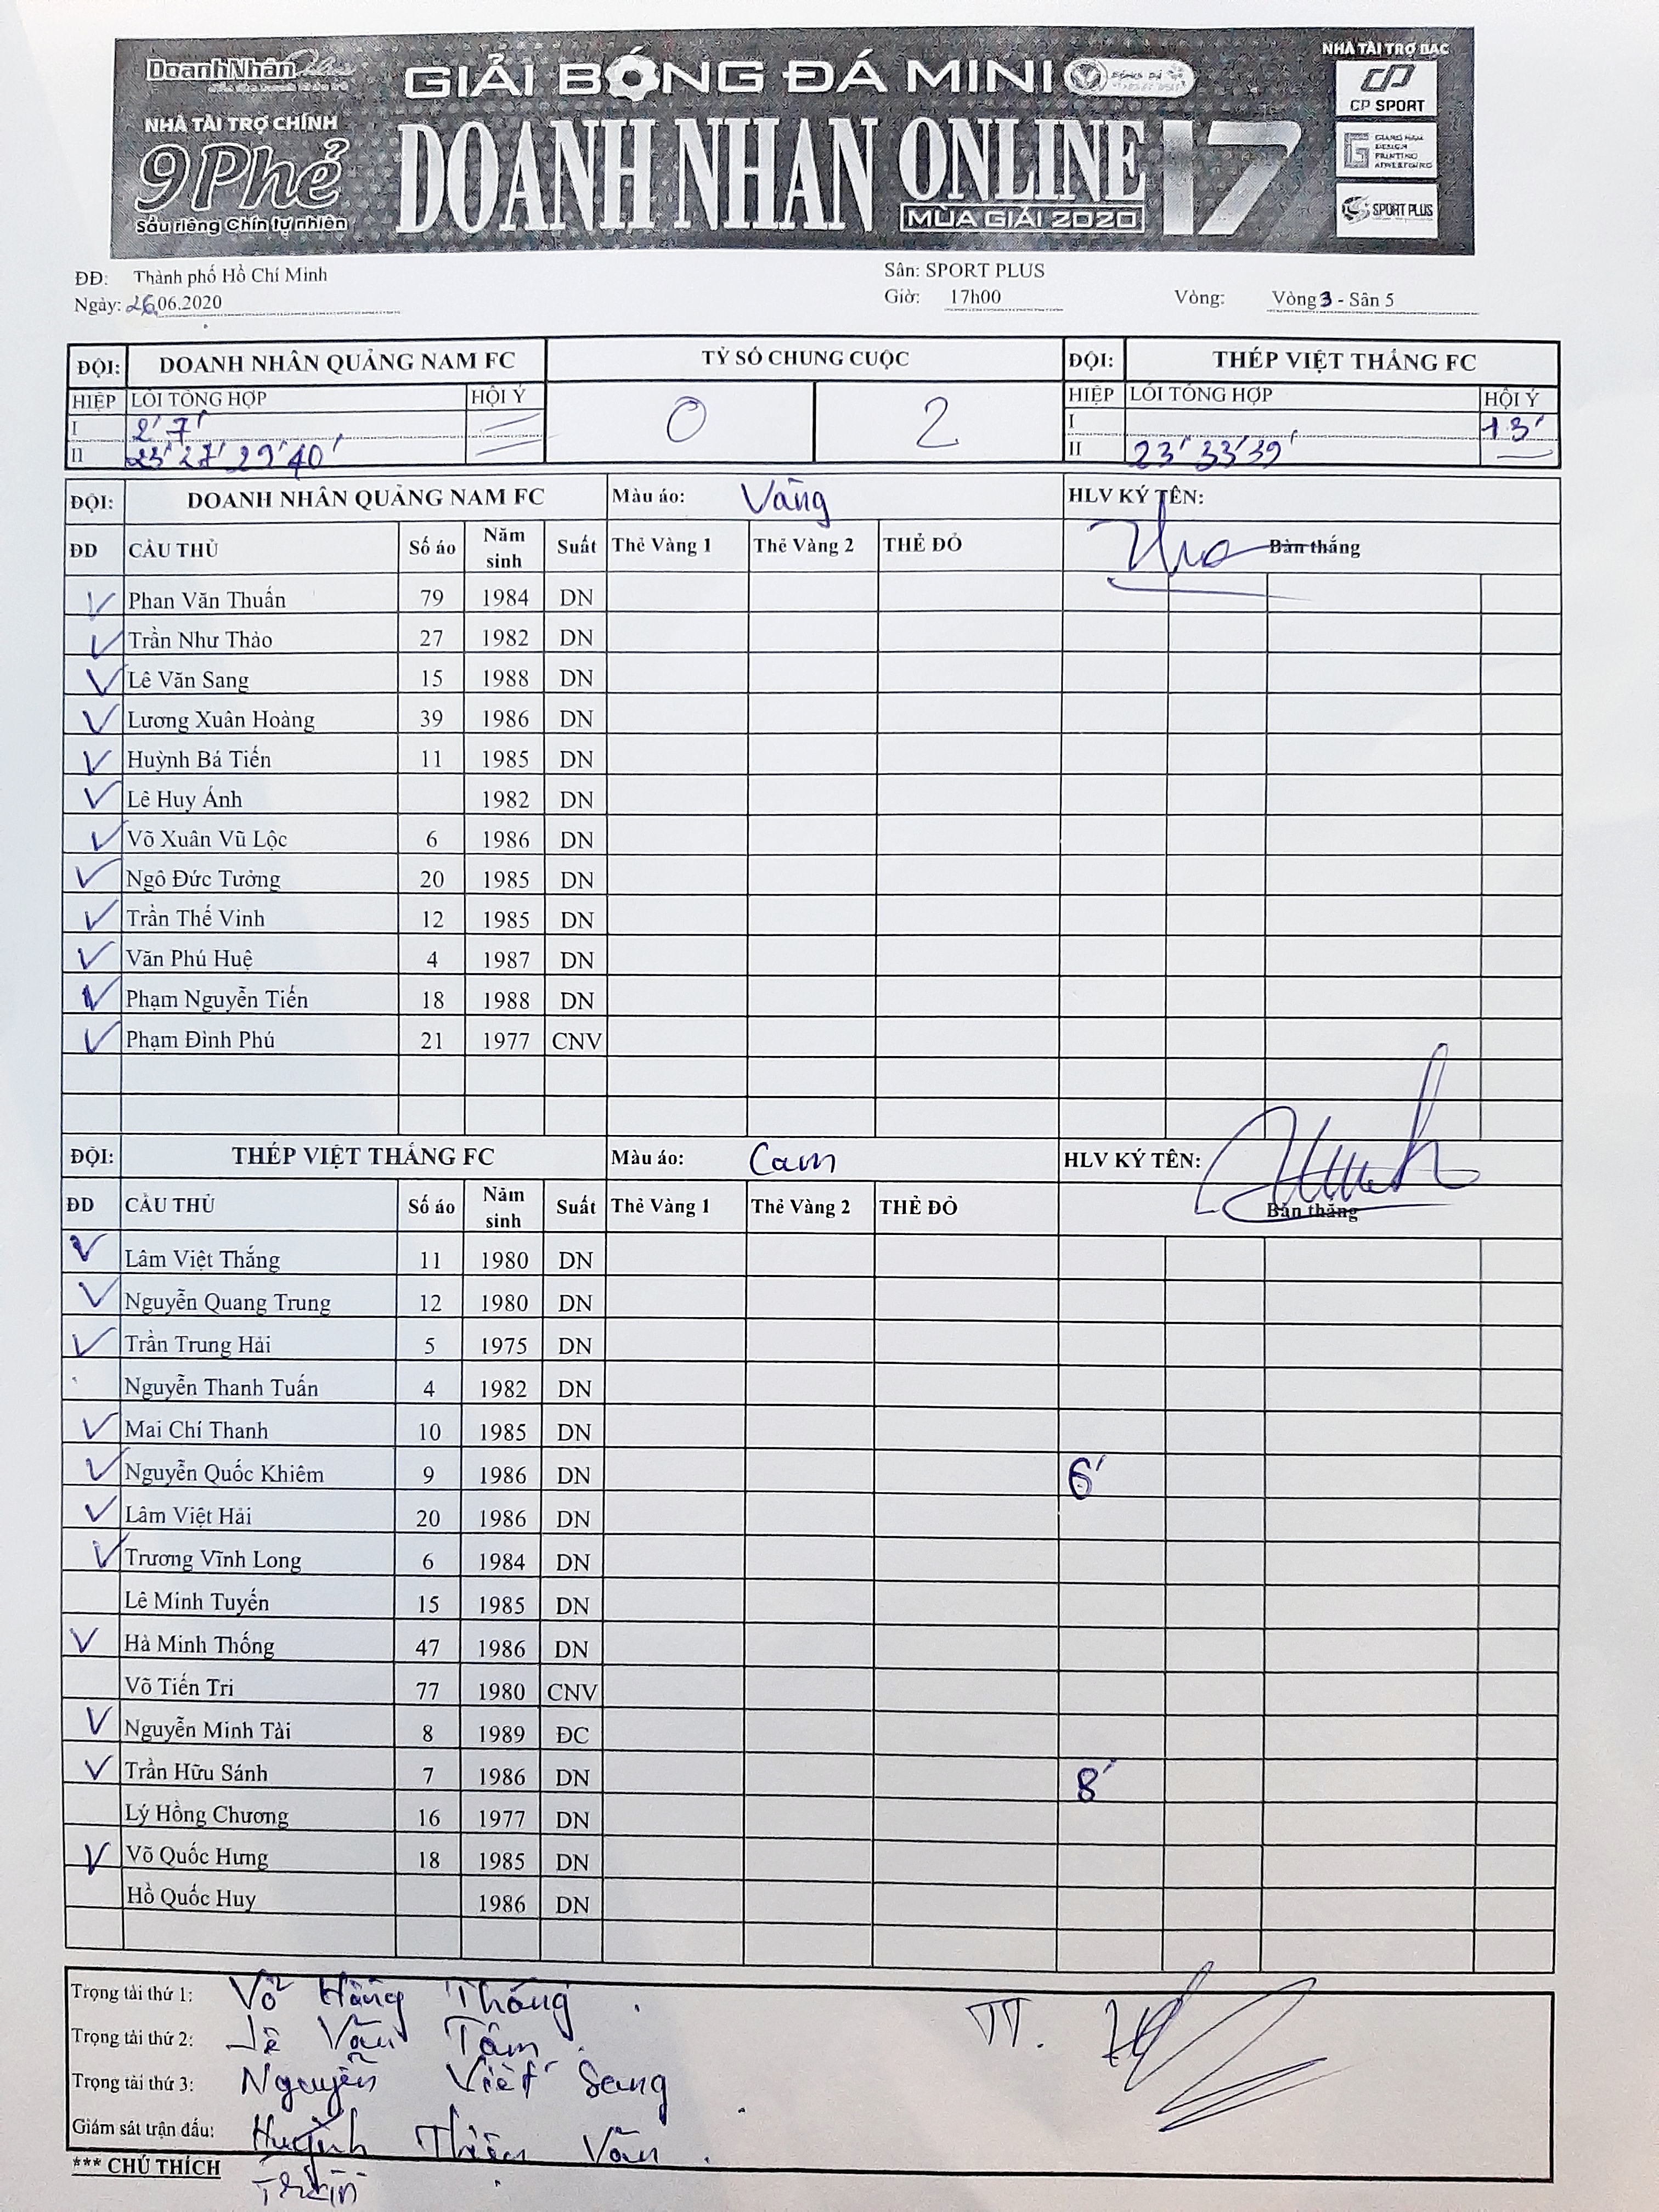 DoanhNhân Plus
NHÀ TÀI TRỢ CHÍNH
9 Phẻ
Sầu riêng Chín tự nhiên
GIẢI BÓNG ĐÁ MINI
DOANH NHÂN ONLINE 17
MÙA GIẢI 2020
NHÀ TÀI TRỢ BẠC
CP SPORT
DESIGN
PRINTING
SPORT PLUS
ĐĐ: Thành phố Hồ Chí Minh
Sân: SPORT PLUS
Ngày: 26.06.2020
Giờ: 17h00
Vòng: Vòng 3 - Sân 5
ĐỘI: DOANH NHÂN QUẢNG NAM FC TỶ SỐ CHUNG CUỘC ĐỘI: THÉP VIỆT THẮNG FC
HIỆP LỖI TỔNG HỢP HỘI Ý 0 2 HIỆP LỖI TỔNG HỢP HỘI Ý
I 2' 7' I 13'
II 23' 27' 29' 40' II 23' 33' 39'
ĐỘI: DOANH NHÂN QUẢNG NAM FC Màu áo: Vàng HLV KÝ TÊN:
ĐD CẦU THỦ Số áo Năm sinh Suất Thẻ Vàng 1 Thẻ Vàng 2 THẺ ĐỎ Bàn thắng
V Phan Văn Thuấn 79 1984 DN
V Trần Như Thảo 27 1982 DN
V Lê Văn Sang 15 1988 DN
V Lương Xuân Hoàng 39 1986 DN
V Huỳnh Bá Tiến 11 1985 DN
V Lê Huy Ánh 1982 DN
V Võ Xuân Vũ Lộc 6 1986 DN
V Ngô Đức Tưởng 20 1985 DN
V Trần Thế Vinh 12 1985 DN
V Văn Phú Huệ 4 1987 DN
V Phạm Nguyễn Tiến 18 1988 DN
V Phạm Đình Phú 21 1977 CNV
ĐỘI: THÉP VIỆT THẮNG FC Màu áo: Cam HLV KÝ TÊN:
ĐD CẦU THỦ Số áo Năm sinh Suất Thẻ Vàng 1 Thẻ Vàng 2 THẺ ĐỎ Bàn thắng
V Lâm Việt Thắng 11 1980 DN
V Nguyễn Quang Trung 12 1980 DN
V Trần Trung Hải 5 1975 DN
Nguyễn Thanh Tuấn 4 1982 DN
V Mai Chí Thanh 10 1985 DN
V Nguyễn Quốc Khiêm 9 1986 DN 6'
V Lâm Việt Hải 20 1986 DN
V Trương Vĩnh Long 6 1984 DN
Lê Minh Tuyến 15 1985 DN
V Hà Minh Thống 47 1986 DN
Võ Tiến Tri 77 1980 CNV
V Nguyễn Minh Tài 8 1989 ĐC
V Trần Hữu Sánh 7 1986 DN 8'
Lý Hồng Chương 16 1977 DN
V Võ Quốc Hưng 18 1985 DN
Hồ Quốc Huy 1986 DN
Trọng tài thứ 1: Võ Hồng Thống TT.
Trọng tài thứ 2: Lê Văn Tâm
Trọng tài thứ 3: Nguyễn Viết Sang
Giám sát trận đấu: Huỳnh Thiên Vân
*** CHÚ THÍCH